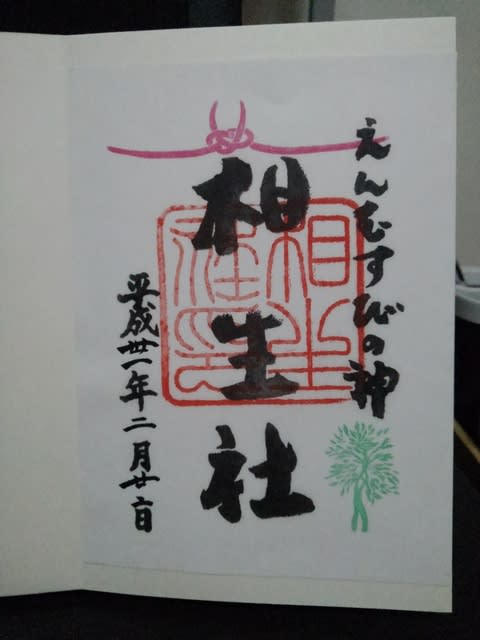 えんむすびの神
相生社
相生社印
平成卅一年二月廿一日